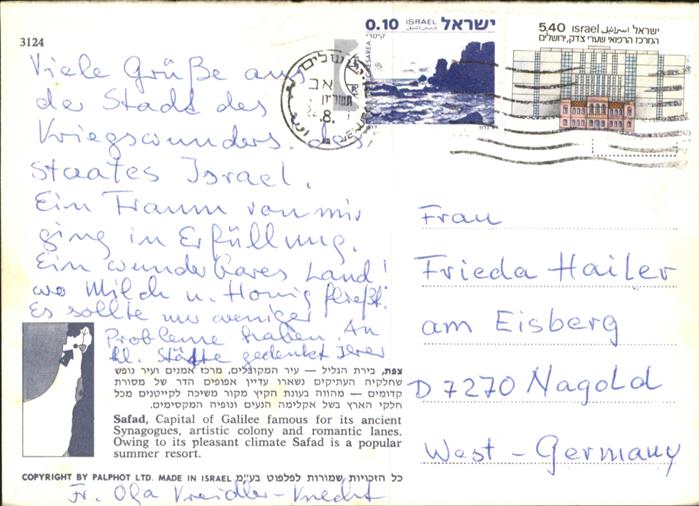 3124
Viele Grüße aus
der Stadt des
Kriegswunders des
Staates Israel.
Ein Traum von mir
ging in Erfüllung.
Ein wunderbares Land!
wo Milch u. Honig fließt.
Es sollte nur weniger
Probleme haben. An
hl. Stätte gedenket Ihrer
צפת, בירת הגליל — עיר המקובלים, מרכז אמנים ועיר נופש
שחלקיה העתיקים נשארו עדיין אפופים הדר של מסורת
קדומים — מהווה בעונת הקיץ מקור משיכה לקייטנים מכל
חלקי הארץ בשל אקלימה הנעים ונופיה המקסימים.
Safad, Capital of Galilee famous for its ancient
Synagogues, artistic colony and romantic lanes.
Owing to its pleasant climate Safad is a popular
summer resort.
COPYRIGHT BY PALPHOT LTD. MADE IN ISRAEL כל הזכויות שמורות לפלפוט בע"מ
Fr. Olga Kreidler-Knecht
0.10 ISRAEL ישראל
קיסרי
CAESAREA
ירושלים
5.40 ISRAEL اسرائيل ישראל
המרכז הרפואי שערי צדק, ירושלים
Frau
Frieda Hailer
am Eisberg
D 7270 Nagold
West-Germany